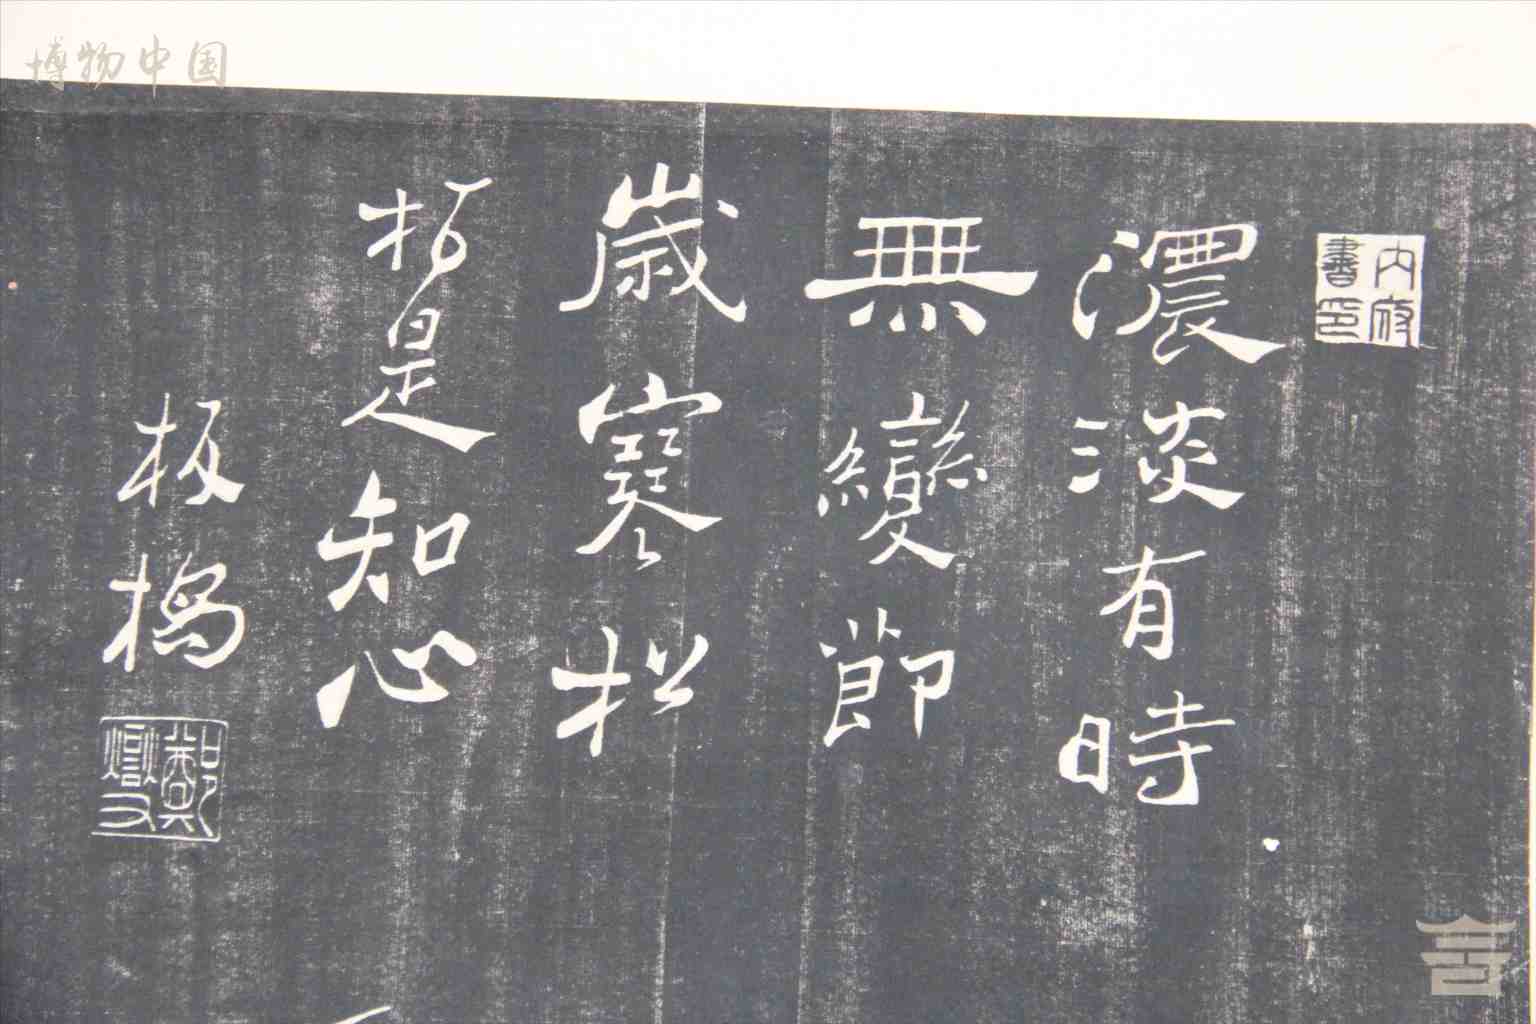 博物中国
内府書印
濃淡有時
無變節
歲寒松
栢是知心
板橋
鄭燮